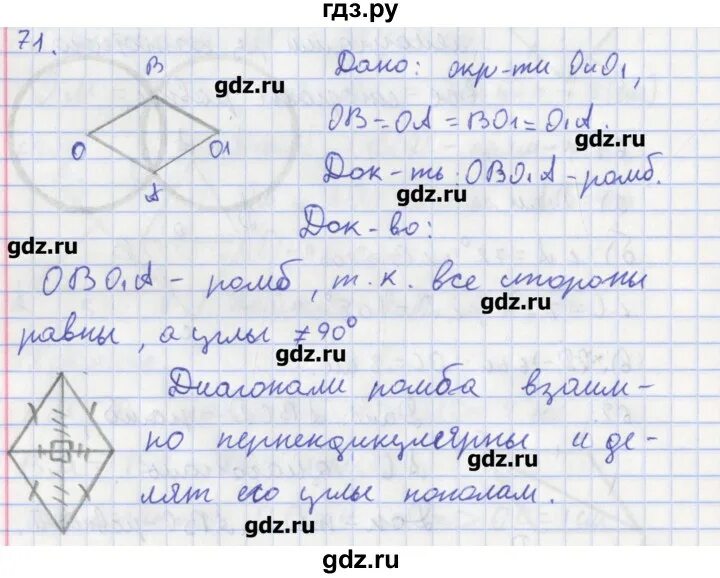 гдз.ру
71.
В
О
О1
А
gdz.ru
Дано: окр-ти О и О1,
ОВ = ОА = ВО1 = О1А.
gdz.ru
Док-ть: ОВО1А - ромб.
gdz.ru
Док-во:
gdz.ru
ОВО1А - ромб, т.к. все стороны
gdz.ru
равны, а углы ≠ 90°
gdz.ru
Диагонали ромба взаим-
но перпендикулярны и де-
gdz.ru
лят его углы пополам.
gdz.ru
gdz.ru